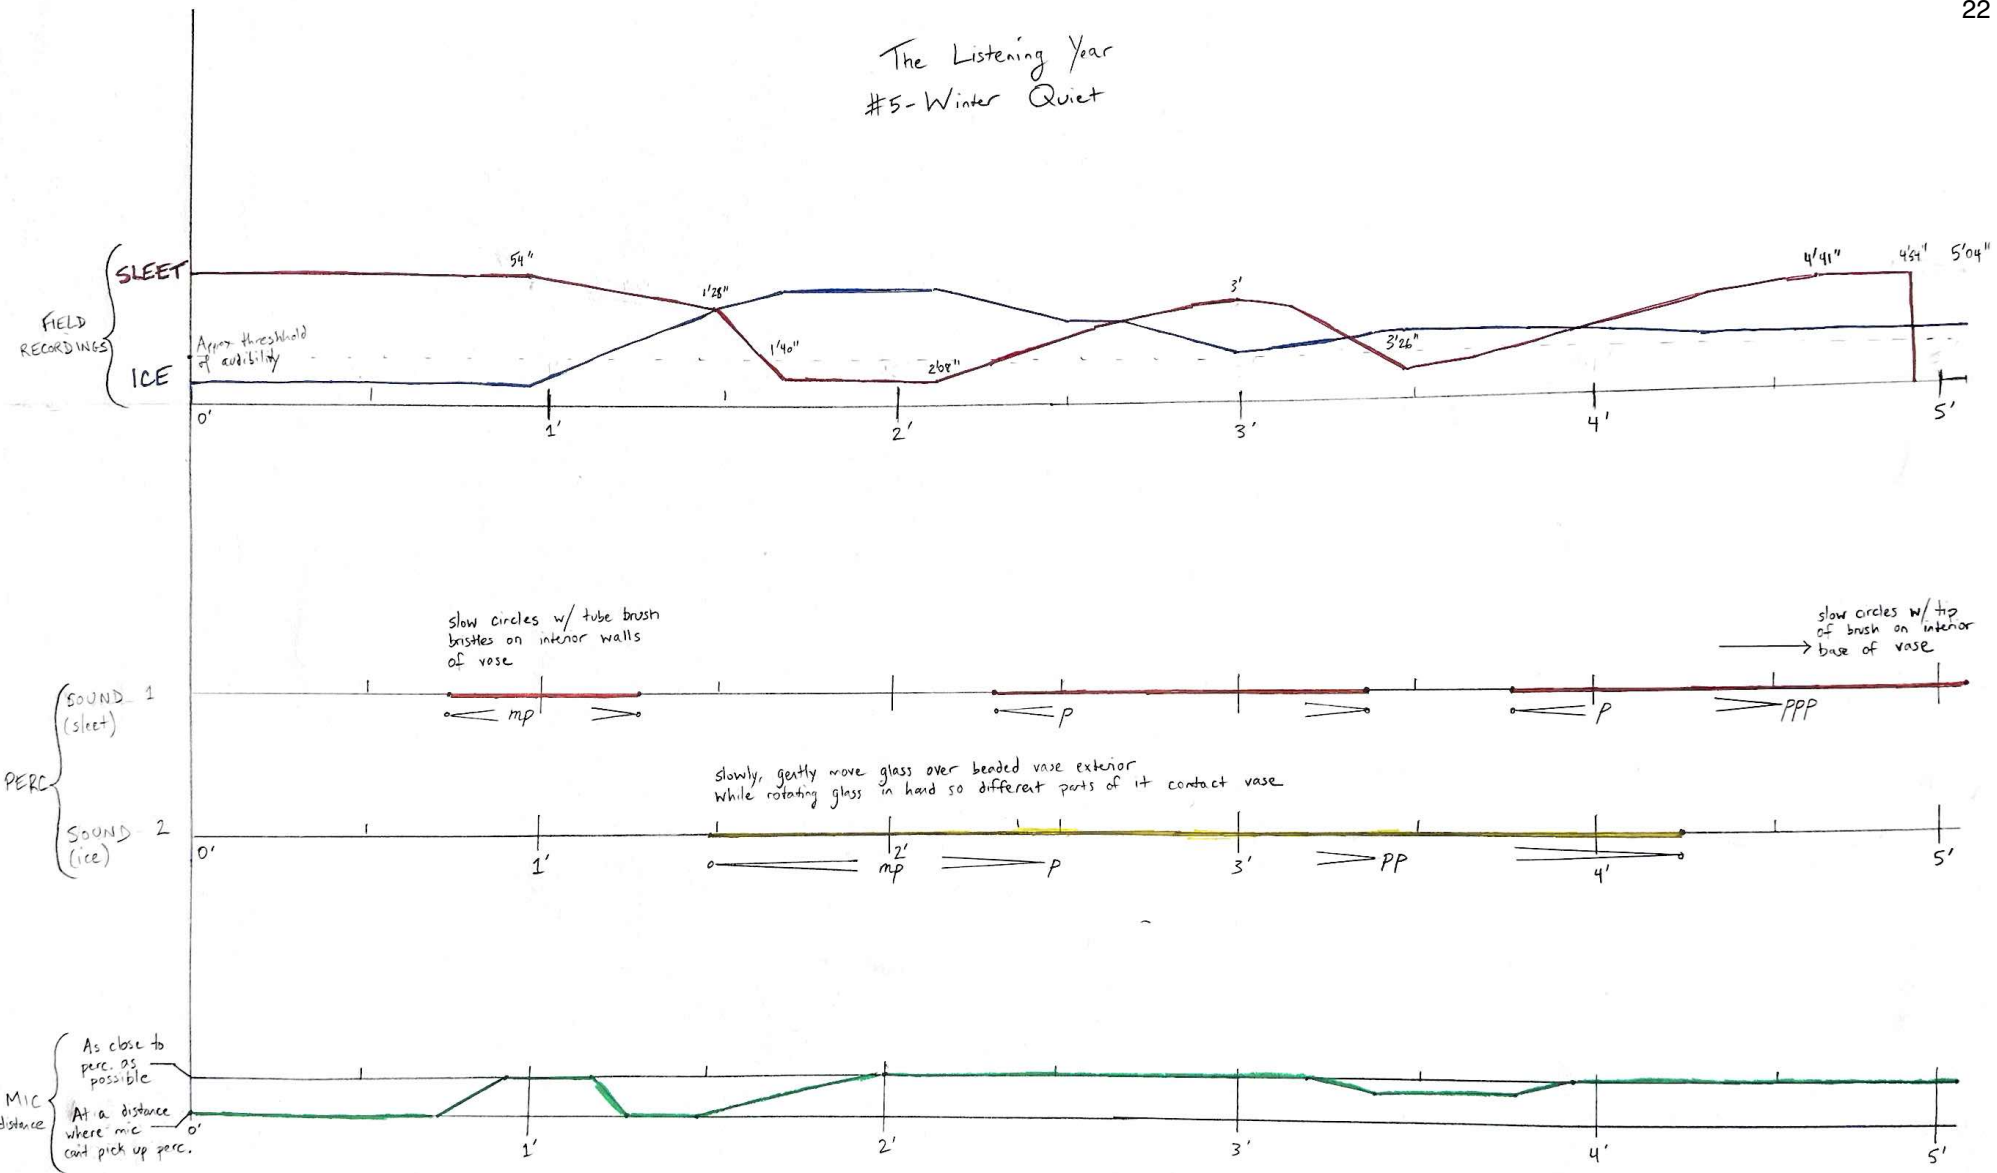 22
The Listening Year
#5-Winter Quiet
FIELD
RECORDINGS
SLEET
ICE
Approx threshhold
of audibility
54"
1'28"
1'40"
2'08"
3'
3'26"
4'41"
4'54"
5'04"
0'
1'
2'
3'
4'
5'
slow circles w/ tube brush
bristles on interior walls
of vase
slow circles w/ tip
of brush on interior
base of vase
PERC
SOUND 1
(sleet)
mp
p
p
ppp
slowly, gently move glass over beaded vase exterior
while rotating glass in hand so different parts of it contact vase
SOUND 2
(ice)
0'
1'
2'
3'
4'
5'
mp
p
pp
MIC
distance
As close to
perc. as
possible
At a distance
where mic
can't pick up perc.
0'
1'
2'
3'
4'
5'